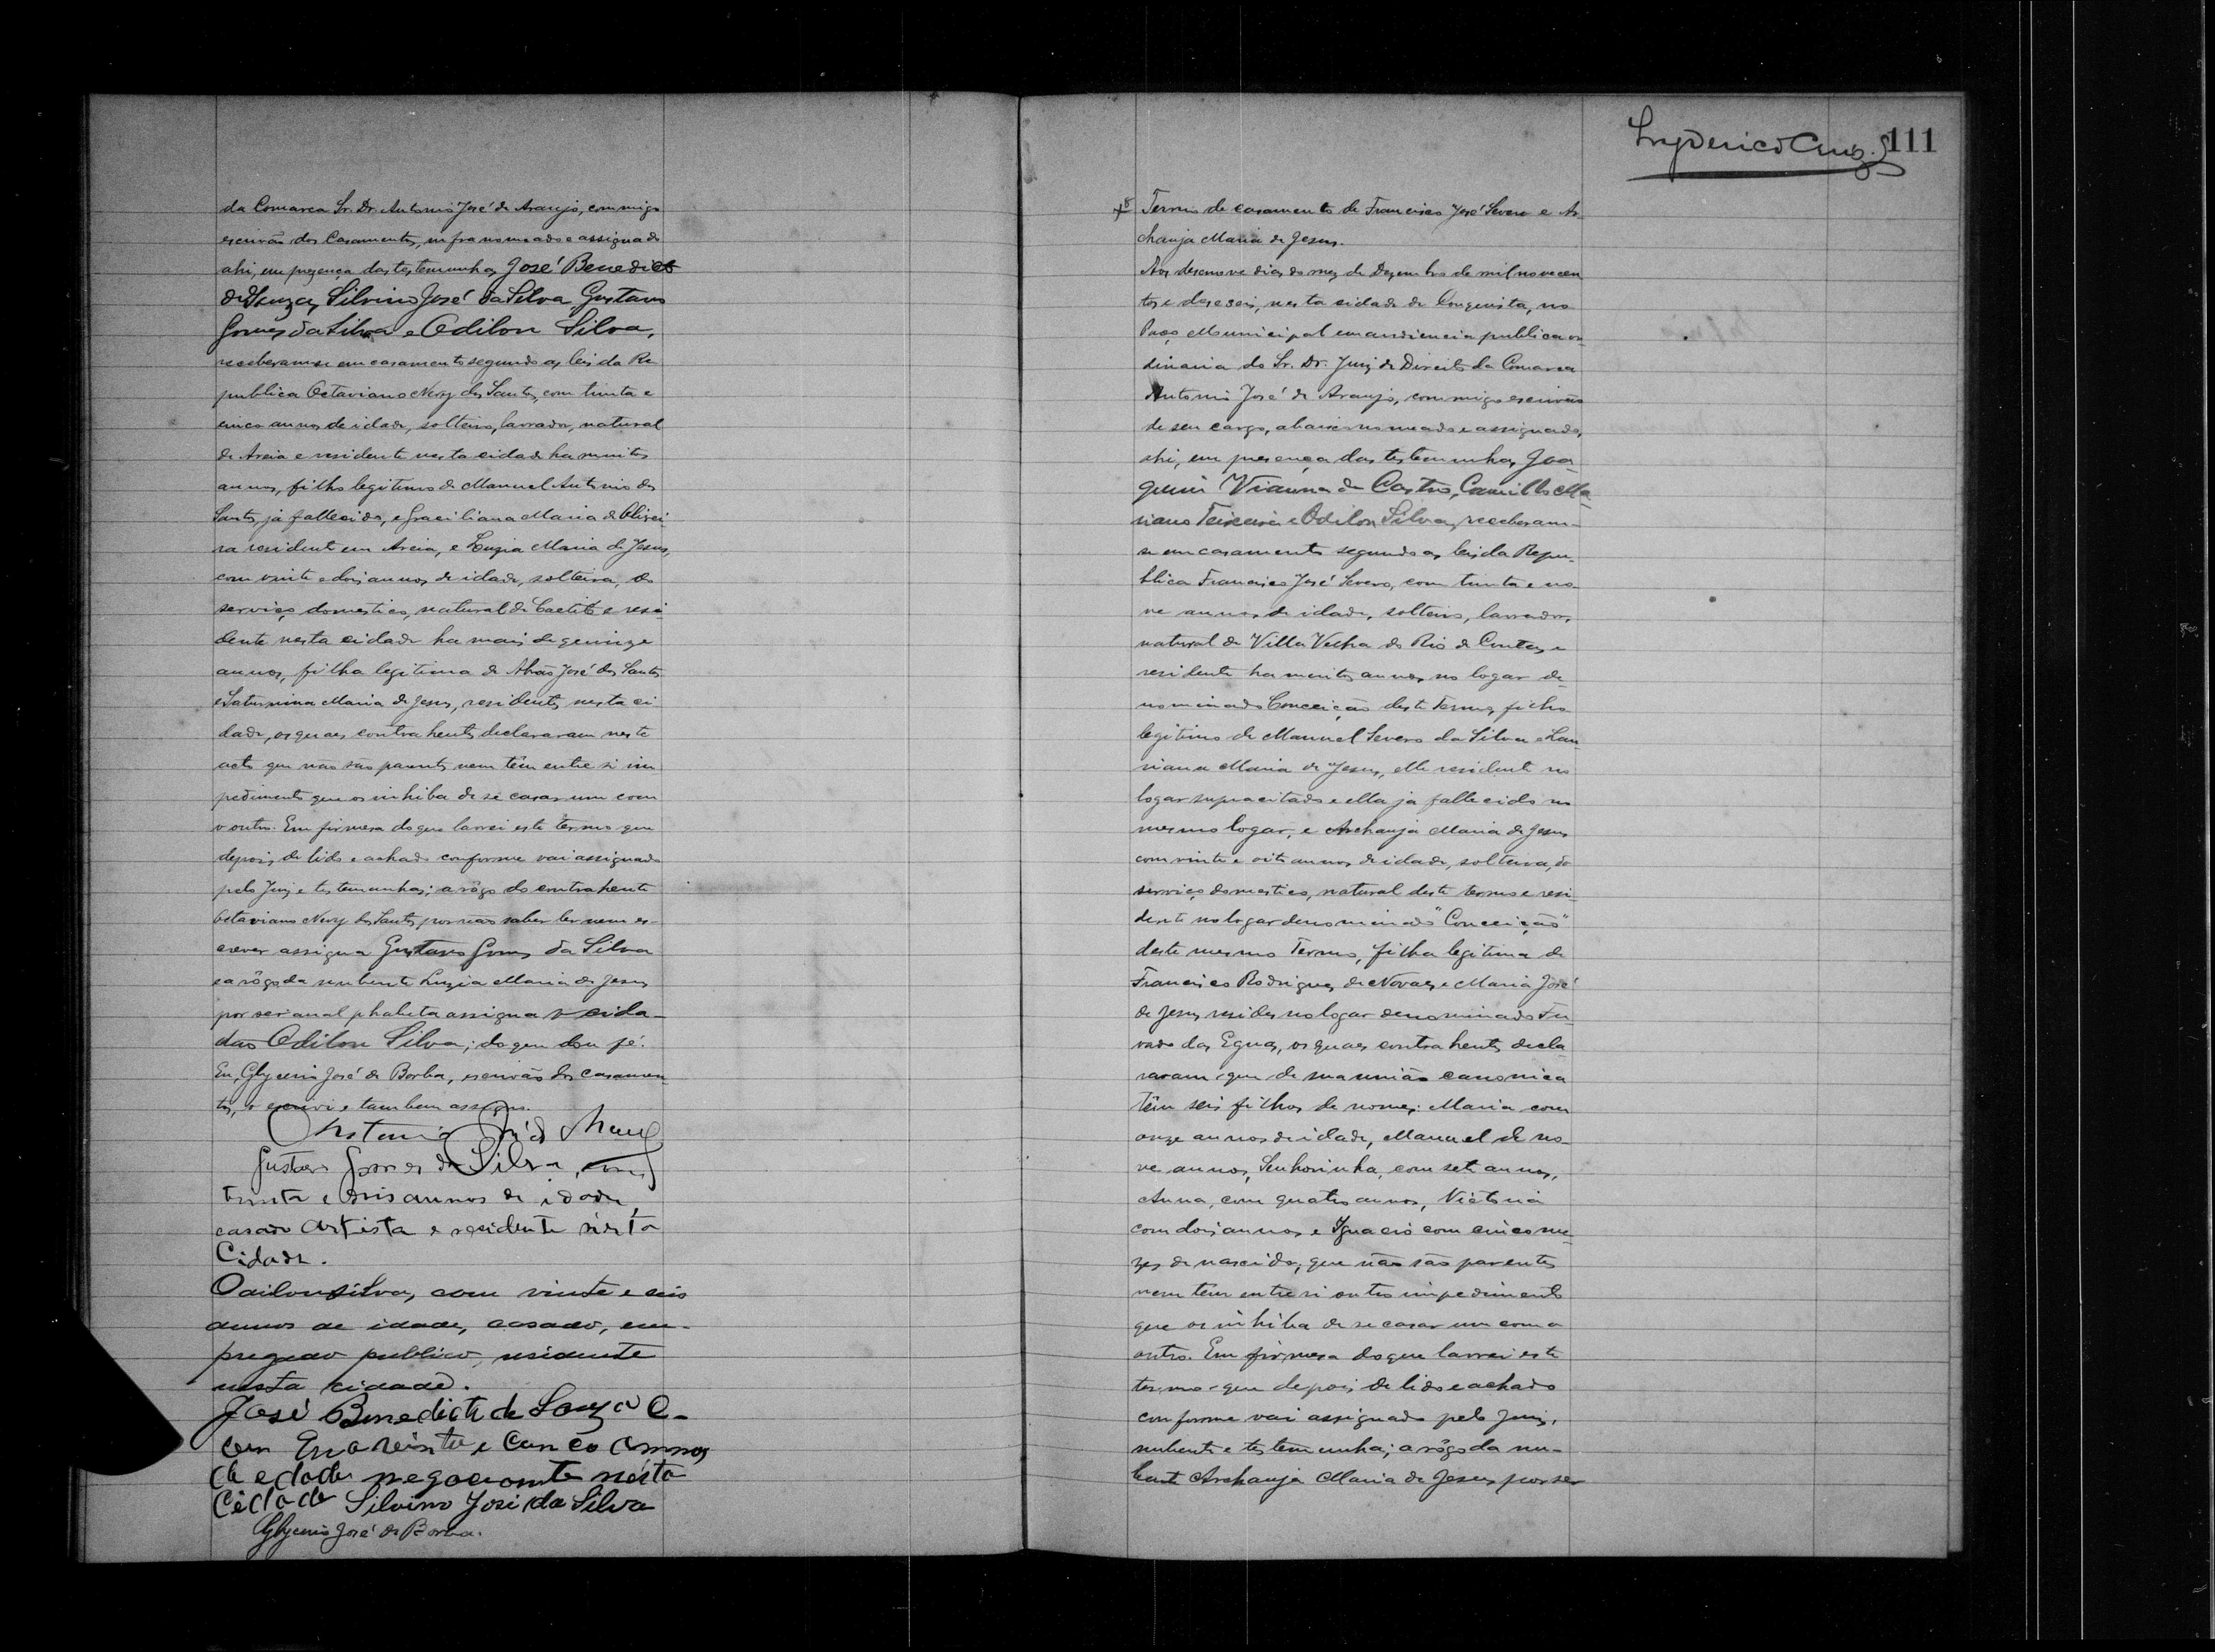 da Comarca Sr. Dr. Antonio José de Araujo, commigo
escrivão dos Casamentos, infra nomeado e assignado
ahi, em presença das testemunhas José Benedicto
de Souza, Silvino José da Silva Gustavo
Gomes da Silva e Odilon Silva,
receberam-se em casamento segundo as leis da Re
publica Octaviano Nery dos Santos, com trinta e
cinco annos de idade, solteiro, lavrador, natural
de Areia e residente nesta cidade ha muitos
annos, filho legitimo de Manuel Antonio dos
Santos, já fallecido, e Graciliana Maria de Olivei
ra residente em Areia, e Luzia Maria de Jesus,
com vinte e dois annos de idade, solteira, do
serviço domestico, natural de Caetité e resi
dente nesta cidade ha mais de quinze
annos, filha legitima de Abrão José dos Santos
e Saturnina Maria de Jesus, residentes nesta ci
dade, os quaes contrahentes declararam neste
acto que não são parentes nem têm entre si im
pedimento que os inhiba de se casar um com
o outro. Em firmesa do que lavrei este termo que
depois de lido e achado conforme vai assignado
pelo Juiz e testemunhas; a rôgo do contrahente
Octaviano Nery dos Santos, por não saber ler nem es-
crever assigna Gustavo Gomes da Silva
e a rôgo da nubente Luzia Maria de Jesus
por ser analphabeta assigna o cida-
dão Odilon Silva; do que dou fé.
Eu, Glycerio José de Borba, escrivão dos casamen
tos, o escrivi e tambem assigno.
Antonio José de Araujo
Gustavo Gomes da Silva, com
trinta e dois annos de idade,
casado artista e residente nésta
Cidade.
Odilon Silva, com vinte e seis
annos de idade, casado, em-
pregado publico, residente
nesta cidade.
José Benedicto de Souza C.
com vinte e cinco annos
de edade negociante nésta
Cidade Silvino José da Silva
Glycerio José de Borba.
111
Termo de casamento de Francisco José Severo e Ar-
changa Maria de Jesus.
Aos desenove dias do mez de Dezembro de mil novecen
tos e deseseis, nesta cidade de Conquista, no
Paço Municipal em audiencia publica or
dinaria do Sr. Dr. Juiz de Direito da Comarca
Antonio José de Araujo, commigo escrivão
de seu cargo, abaixo nomeado e assignado,
ahi, em presença das testemunhas Joa
quim Vianna de Castro, Camillo Ma
riano Teixeira e Odilon Silva, receberam-
se em casamento segundo as leis da Repu-
blica Francisco José Severo, com trinta e no-
ve annos de idade, solteiro, lavrador,
natural de Villa Velha do Rio de Contas e
residente ha muitos annos no logar de-
nominado Conceição deste Termo, filho
legitimo de Manuel Severo da Silva e Lau
riana Maria de Jesus, elle residente no
logar supracitado e ella ja fallecido no
mesmo logar, e Archanja Maria de Jesus
com vinte e oito annos de idade, solteira, do
serviço domestico, natural deste termo e resi-
dente no logar denominado "Conceição"
deste mesmo Termo, filha legitima de
Francisco Rodrigues de Novaes e Maria José
de Jesus residentes no logar denominado Fu-
rado das Eguas, os quaes contrahentes decla-
raram que de sua união canonica
têm seis filhos de nomes: Maria com
onze annos de idade, Manuel de no-
ve annos, Senhorinha, com sete annos,
Anna, com quatro annos, Victoria
com dois annos e Ignacio com cinco me
zes de nascido; que não são parentes
nem tem entre si outro impedimento
que os inhiba de se casar um com o
outro. Em firmesa do que lavrei este
termo que depois de lido e achado
conforme vai assignado pelo Juiz,
nubente e testemunha; a rôgo da nu-
bente Archanja Maria de Jesus por ser